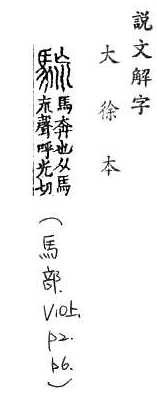 說文解字
大徐本
馬奔也从馬
聲呼光切
(馬部 V10上. p2. p6.)